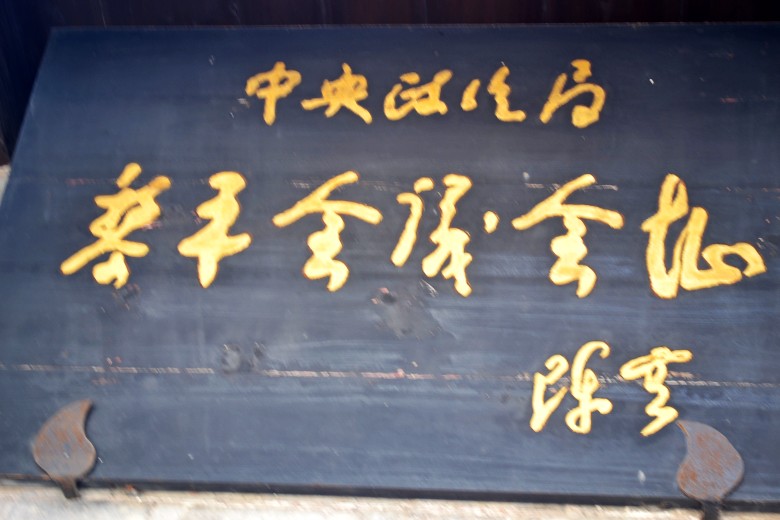 中央政治局
黎平会议会址
陈云